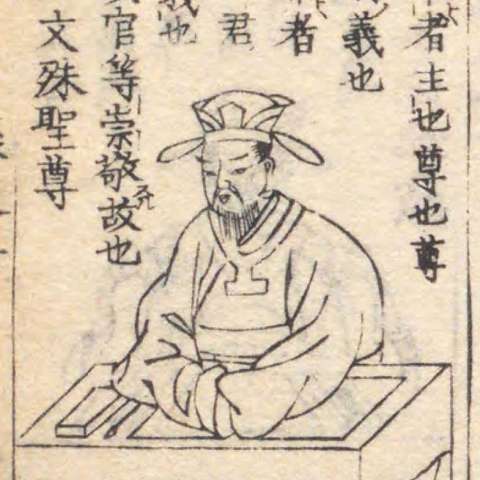 者主也尊也尊
義也
者
君
義也
官等崇敬故也
文殊聖尊